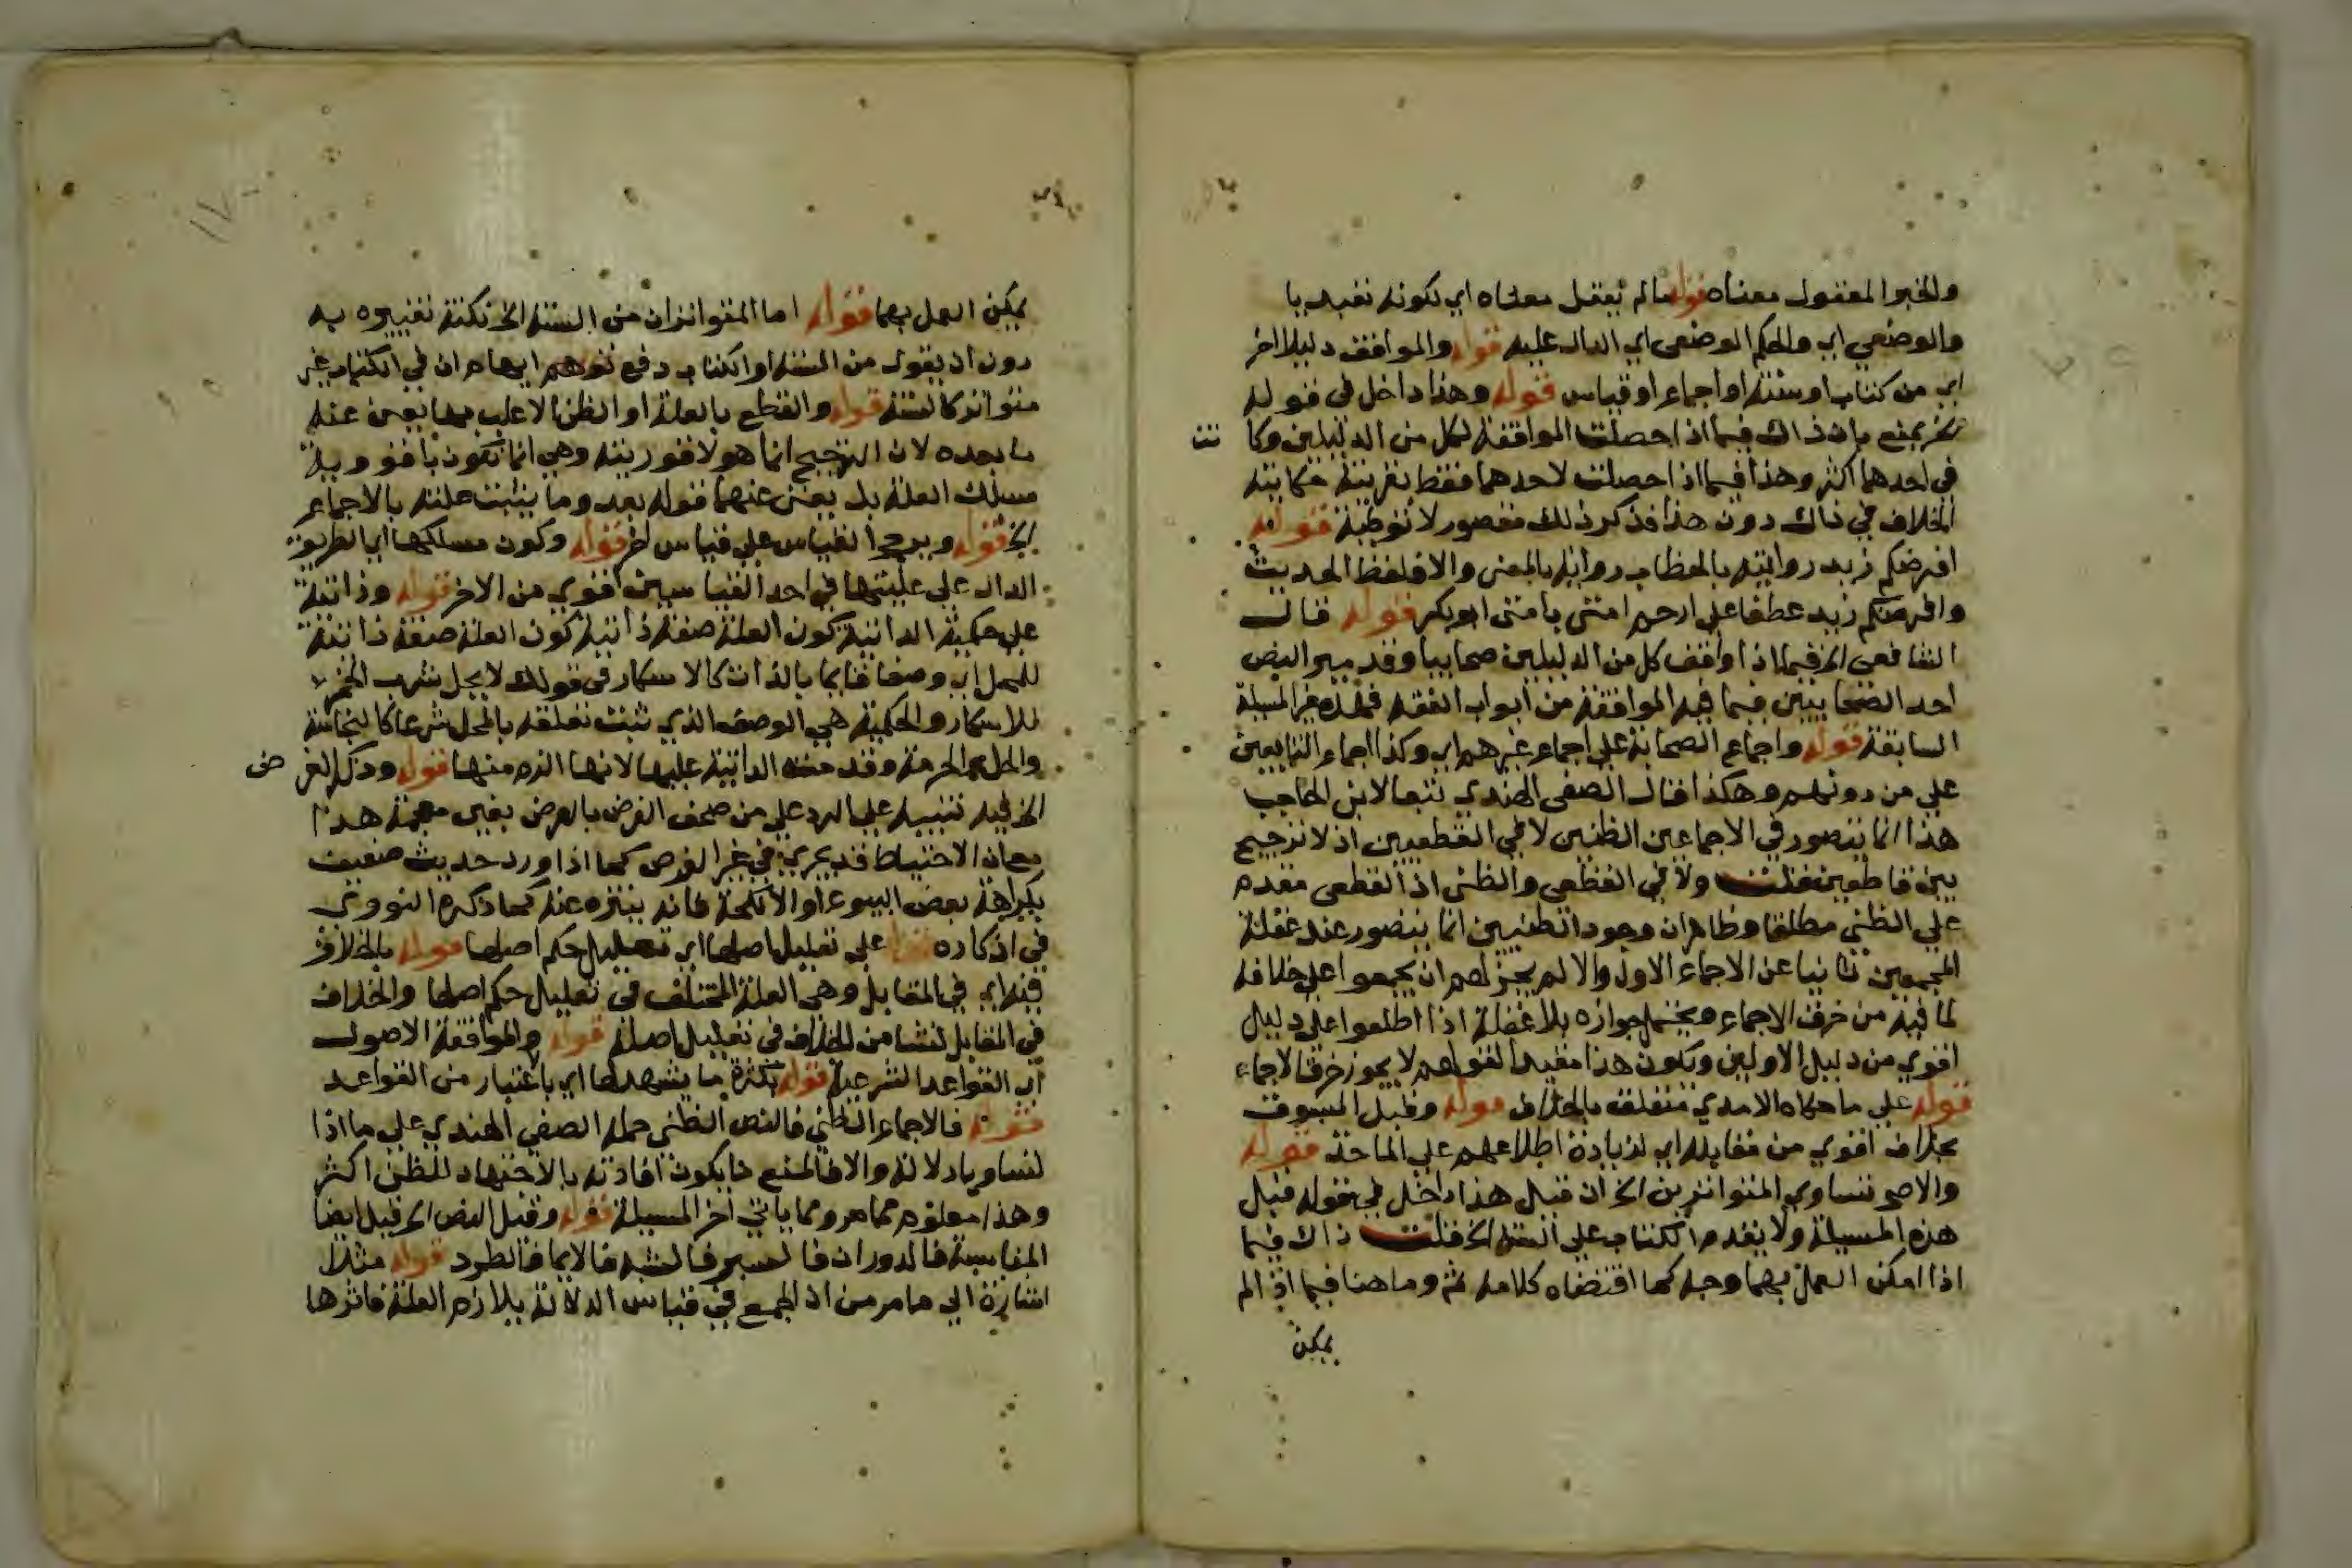 والخبر المعقول معناه قوله ما لم يعقل معناه اي لكونه تعبديا
والوضعي اي والحكم الوضعي اي الدال عليه قوله والموافق دليلا اخر
اي من كتاب او سنة او اجماع او قياس قوله وهذا داخل في قوله
يمنع بان ذاك فيما اذا حصلت الموافقة لكل من الدليلين وكانت
في احدهما اكثر وهذا فيما اذا حصلت لاحدهما فقط بقرينة حكايته
الخلاف في ذاك دون هذا فذكر ذلك مقصور لا توطية قوله
افرضكم زيد روايته بالخطاب رواية بالمعنى والا فلفظ الحديث
وافرضكم زيد عطفا على ارحم امتي بامتي ابو بكر قوله قال
الشافعي الخ فيما اذا وافق كل من الدليلين صحابيا وقد ميز النص
احد الصحابيين فيما فيه الموافقة من ابواب الفقه فهذه غير المسيلة
السابقة قوله واجماع الصحابة على اجماع غيرهم اي وكذا اجماع التابعين
على من دونهم وهكذا قال الصفي الهندي تبعا لابن الحاجب
هذا انما يتصور في الاجماعين الظنين لا في القطعيين اذ لا ترجيح
بين قاطعين قلت ولا في القطعي والظني اذ القطعي مقدم
على الظني مطلقا وظاهر ان وجود الظنيين انما يتصور عند غفلة
المجمعين ثانيا عن الاجماع الاول والا لم يجز لهم ان يجمعوا على خلافه
لما فيه من خرق الاجماع ويحتمل جوازه بلا غفلة اذا اطلعوا على دليل
اقوي من دليل الاولين ويكون هذا مقيدا لقولهم لا يجوز خرق الاجماع
قوله على ما حكاه الامدي متعلق بالخلاف قوله وقيل المسبوق
بخلاف اقوي من مقابله اي لزيادة اطلاعهم على الماخذ قوله
والاصح تساوي المتواترين الخ ان قيل هذا داخل في قوله قبيل
هذه المسيلة ولا يقدم الكتاب على السنة الخ قلت ذاك فيما
اذا امكن العمل بهما وجه كما اقتضاه كلامه ثم وما هنا فيما اذا لم
يمكن
يمكن العمل بهما قوله اما المتواتران من السنة الخ نكتة تغييره به
دون ان يقول من السنة او الكتاب دفع توهم ايهام ان في الكتاب غير
متواتر كالسنة قوله والقطع بالعلة او الظن الاغلب بها يغني عنه
ما بعده لان الترجيح انما هو لاقوريته وهي انما تكون باقووية
مسلك العلة بل يغني عنهما قوله بعد وما يثبت علته بالاجماع
الخ قوله ويرجح القياس على قياس اخر قوله وكون مسلكها اي الطريق
الدال على عليتها في احد القياسين اقوي من الاخر قوله وذاتية
على حكمية الذاتية كون العلة صفة ذاتية كون العلة صفة ذاتية
للمحل اي وصفا قايما بالذات كالاسكار في قولك لا يحل شرب الخمر
للاسكار والحكمية هي الوصف الذي ثبت تعلقه بالمحل شرعا كالنجاسة
والحل والحرمة وقدمت الذاتية عليها لانها الزم منها قوله وذكر الفرض
الخ فيه تنبيه على الرد على من صحف الفرض بالعرض بغين معجمة هذا
مع ان الاحتياط قد يجري في غير الفرض كما اذا ورد حديث ضعيف
بكراهة بعض البيوع او الانكحة فانه يتنزه عنه كما ذكره النووي
في اذكاره قوله على تعليل اصلها اي تعليل حكم اصلها قوله بالخلاف
فيه اي في المقابل وهي العلة المختلف في تعليل حكم اصلها والخلاف
في المقابل نشا من الخلاف في تعليل اصله قوله والموافقة الاصول
اي القواعد الشرعية قوله بكثرة ما يشهد لها اي باعتبار من القواعد
قوله فالاجماع الظني فالنص الظني حمله الصفي الهندي على ما اذا
تساويا دلالة والا فالمتبع ما يكون افادته بالاجتهاد للظن اكثر
وهذا معلوم مما مر ومما ياتي اخر المسيلة قوله وقيل النص الخ قيل ايضا
المناسبة فالدوران فالسبر فالشبه فالايما فالطرد قوله مثلا
اشارة الى ما مر من ان الجمع في قياس الدلالة بلازم العلة فاثرها